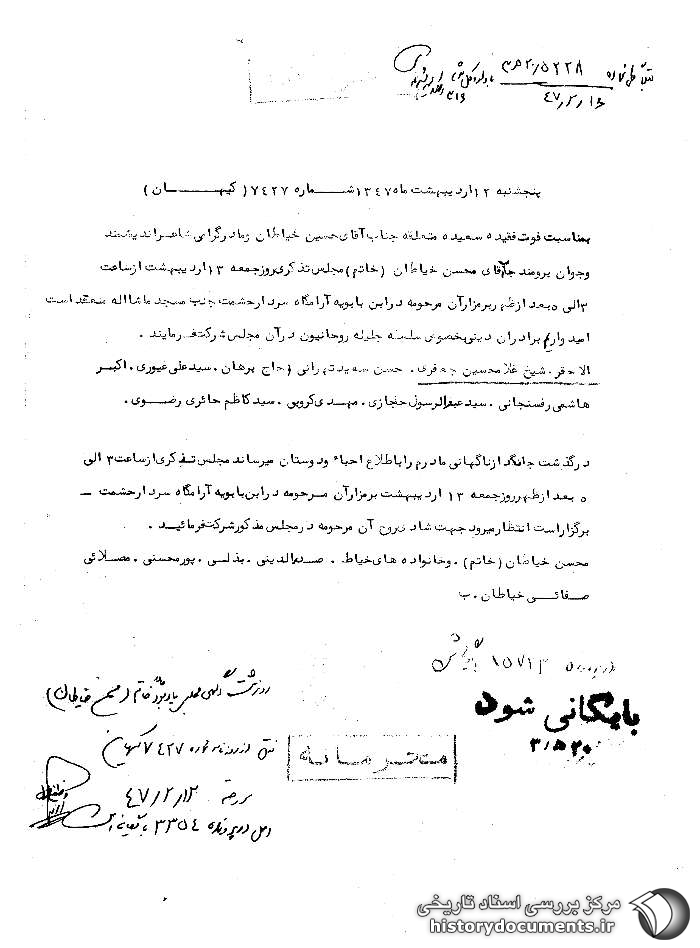 ۲۰/۵۲۲۸ ۳ه‍
۴۷/۲/۱۶
۳۱۶
پنجشنبه ۱۲ اردیبهشت ماه ۱۳۴۷ شماره ۷۴۲۷ ( کیهان )
بمناسبت فوت فقیده سعیده متعلقه جناب آقای حسین خیاطان و مادر گرامی شاعر اندیشمند
وجوان برومند جناب آقای محسن خیاطان (خاتم) مجلس تذکری روز جمعه ۱۳ اردیبهشت از ساعت
۳ الی ۵ بعد از ظهر برمزار آن مرحومه در ابن بابویه آرامگاه سردار حشمت جنب مسجد ماشااله منعقد است
امید واریم برادران دینی بخصوص سلسله جلیله روحانیون در آن مجلس شرکت فرمایند .
الاحقر . شیخ غلامحسین جعفری . حسن سعید تهرانی (حاج برهان . سید علی غیوری . اکبر
هاشمی رفسنجانی . سید عبدالرسول حجازی . مهدی کروبی . سید کاظم حائری رضوی .
درگذشت جانگداز ناگهانی مادرم را باطلاع احباء و دوستان میرساند مجلس تذکری از ساعت ۳ الی
۵ بعد از ظهر روز جمعه ۱۳ اردیبهشت برمزار آن مرحومه در ابن بابویه آرامگاه سردار حشمت –
برگزار است انتظار میرود جهت شادی روح آن مرحومه در مجلس مذکور شرکت فرمائید .
محسن خیاطان (خاتم) . و خانواده های خیاط . صدرالدینی . بذلی . پورمحسنی . مصلائی
صفائی خیاطان . ب
۱۵۷۱۳
بایگانی شود
۳/۵/۲۰
رونوشت آگهی مجلس یادبود مادر خاتم (محسن خیاطان)
نقل از روزنامه شماره ۷۴۲۷ کیهان
مورخه ۴۷/۲/۱۲
اصل در پرونده ۳۳۵۴ بایگانی است
محرمانه
مرکز بررسی اسناد تاریخی
historydocuments.ir